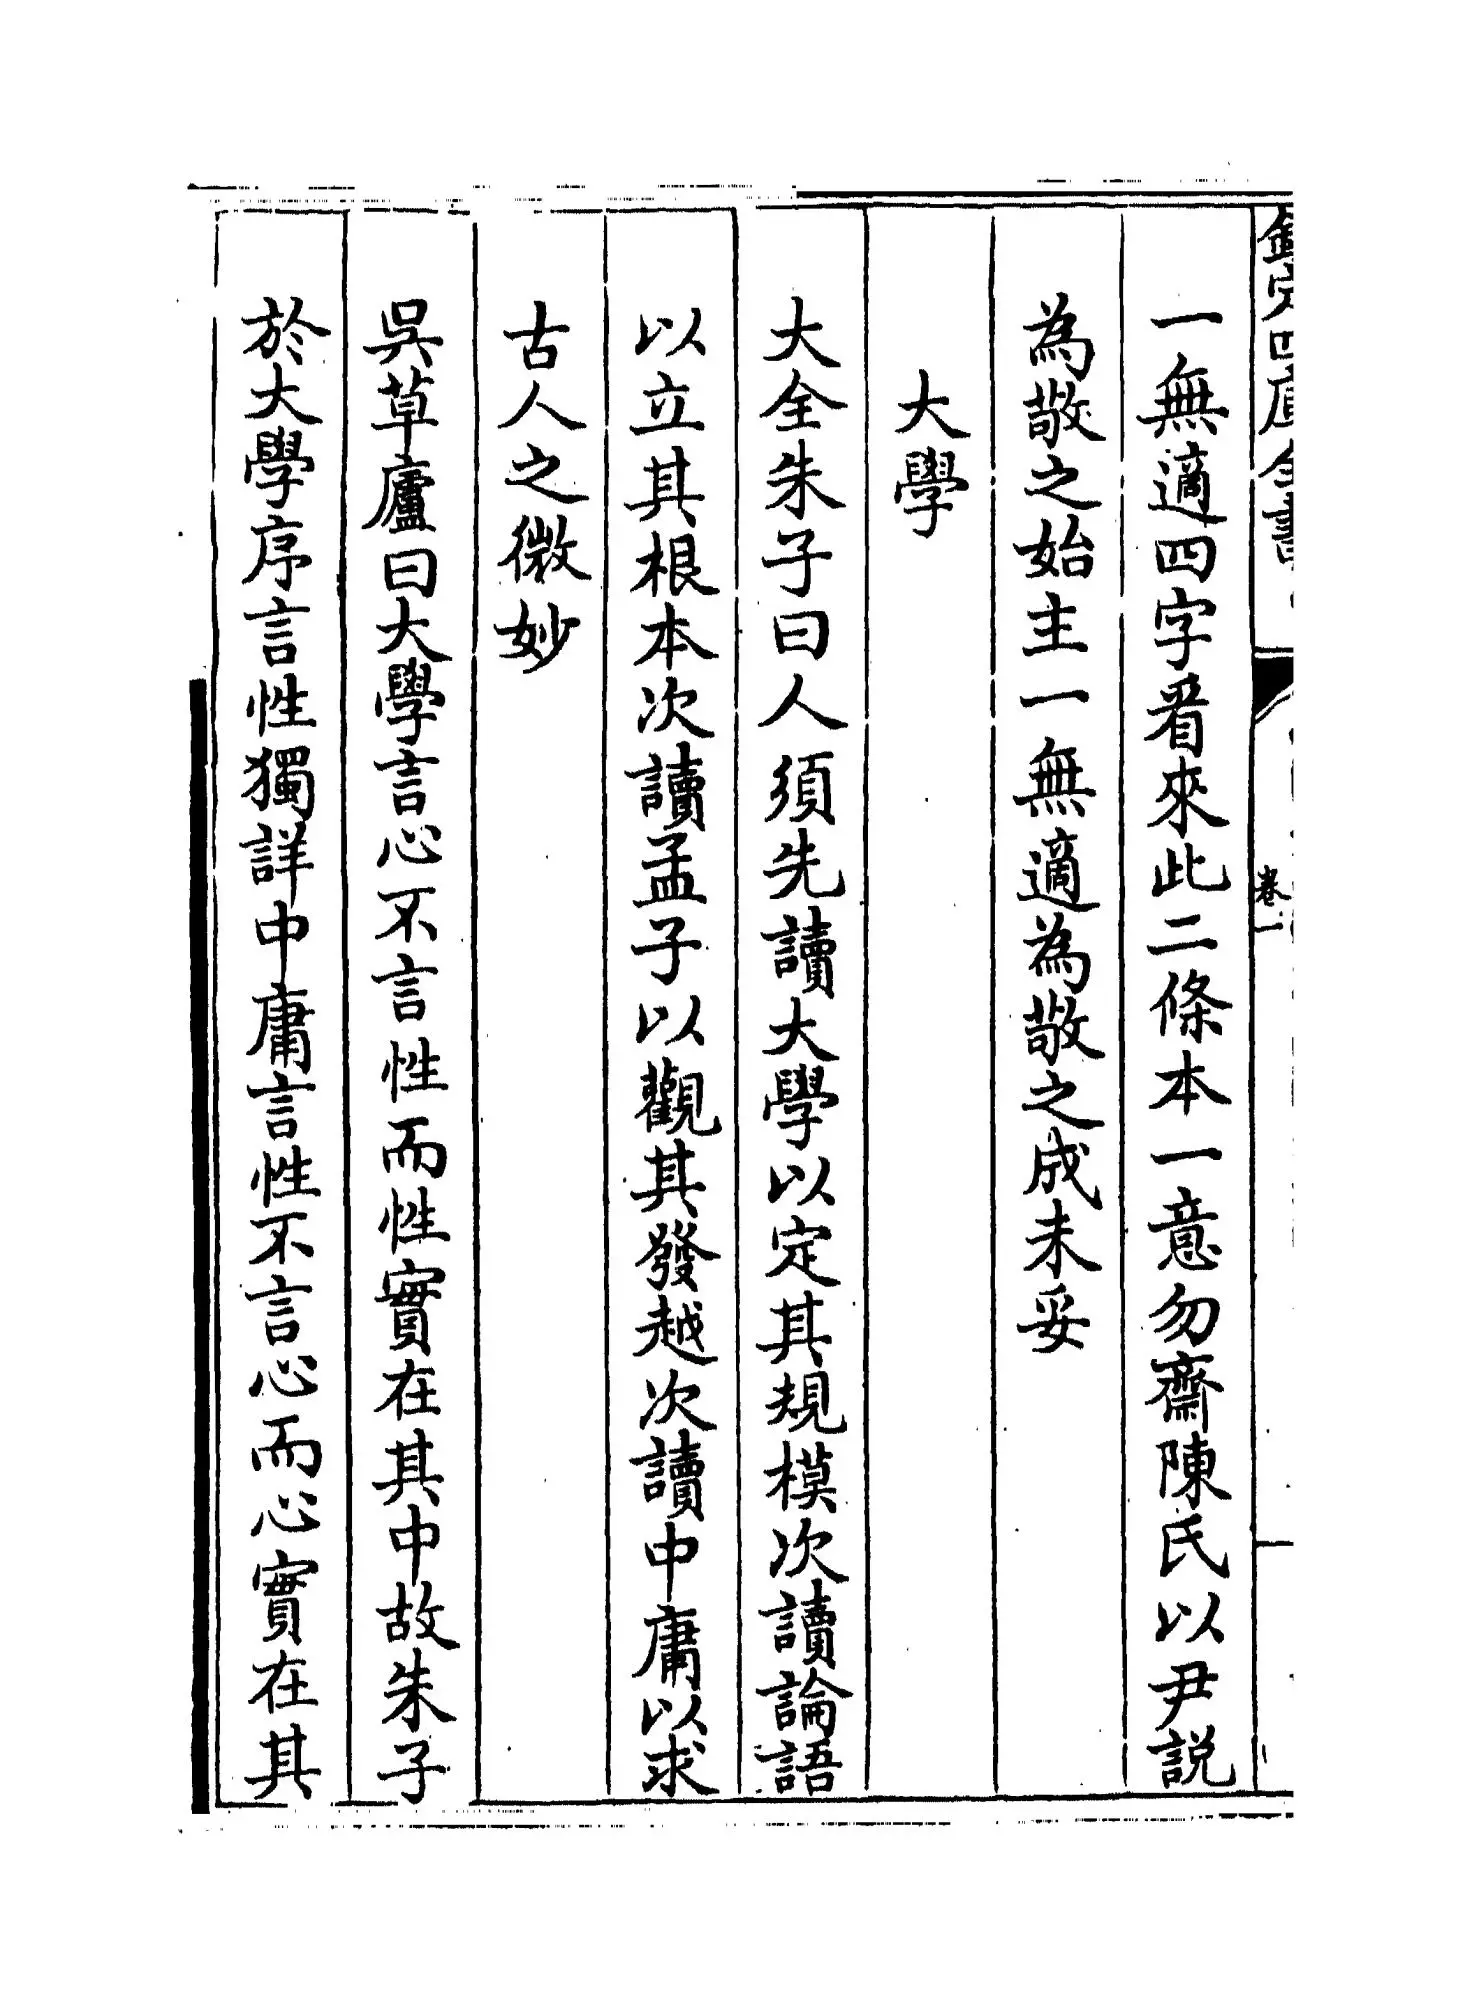 欽定四庫全書
卷一
一無適四字看來此二條本一意勿齋陳氏以尹説
為敬之始主一無適為敬之成未妥
大學
大全朱子曰人須先讀大學以定其規模次讀論語
以立其根本次讀孟子以觀其發越次讀中庸以求
古人之微妙
吳草廬曰大學言心不言性而性實在其中故朱子
於大學序言性獨詳中庸言性不言心而心實在其